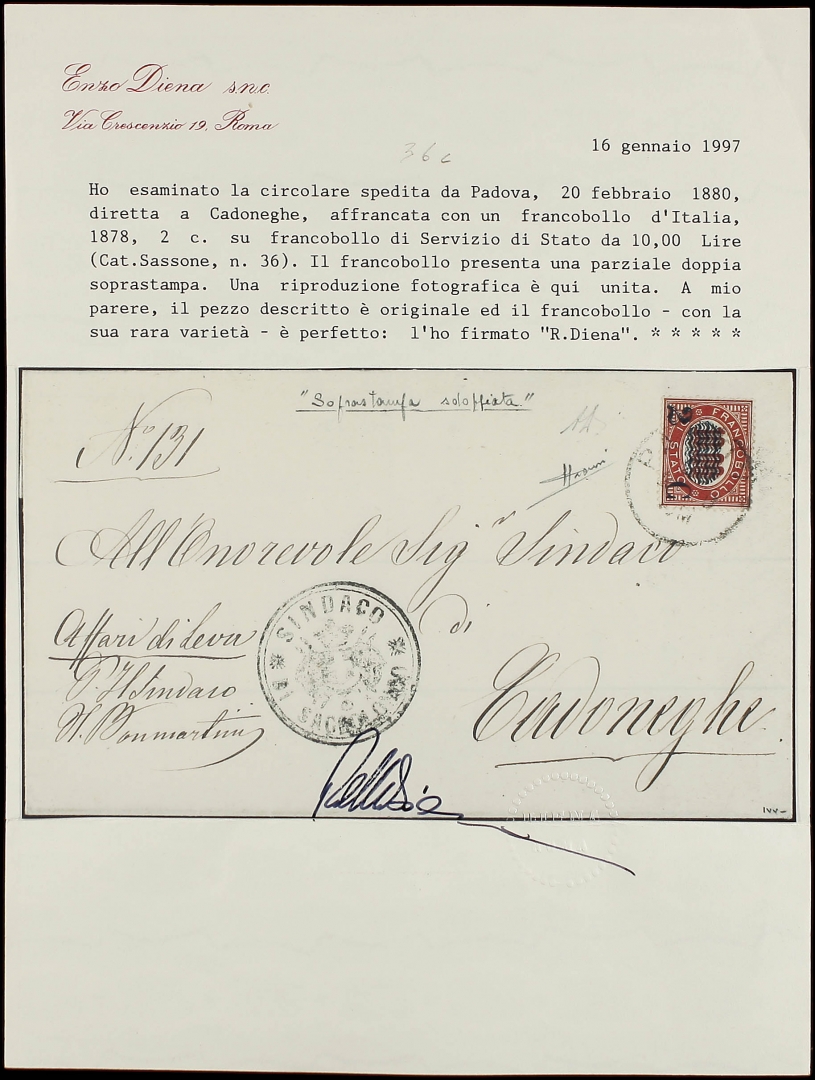 Enzo Diena s.n.c.
Via Crescenzio 19, Roma
36 c
16 gennaio 1997
Ho esaminato la circolare spedita da Padova, 20 febbraio 1880,
diretta a Cadoneghe, affrancata con un francobollo d'Italia,
1878, 2 c. su francobollo di Servizio di Stato da 10,00 Lire
(Cat.Sassone, n. 36). Il francobollo presenta una parziale doppia
soprastampa. Una riproduzione fotografica è qui unita. A mio
parere, il pezzo descritto è originale ed il francobollo - con la
sua rara varietà - è perfetto: l'ho firmato "R.Diena". * * * * *
"Soprastampa sdoppiata"
N.° 131
FRANCOBOLLO
DI STATO
All'Onorevole Sigr Sindaco
di
Cadoneghe
Affari di Leva
P. Il Sindaco
SINDACO